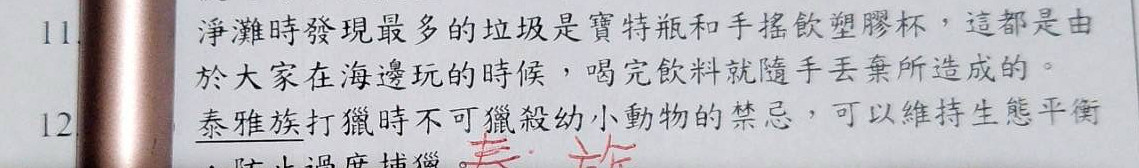 11. 淨灘時發現最多的垃圾是寶特瓶和手搖飲塑膠杯，這都是由
於大家在海邊玩的時候，喝完飲料就隨手丟棄所造成的。
12 泰雅族打獵時不可獵殺幼小動物的禁忌，可以維持生態平衡
，防止過度捕獵。